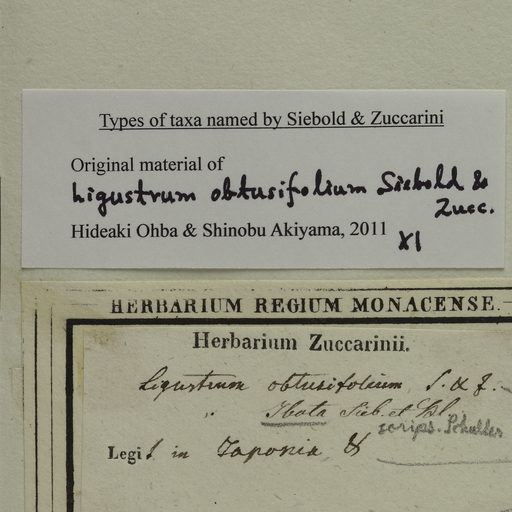 Types of taxa named by Siebold & Zuccarini
Original material of
Ligustrum obtusifolium Siebold &
Zucc.
Hideaki Ohba & Shinobu Akiyama, 2011
XI
HERBARIUM REGIUM MONACENSE.
Herbarium Zuccarinii.
Ligustrum obtusifolium, S. & Z.
" Ibota Sieb. et
scrips. Schultes
Legit in Japonia